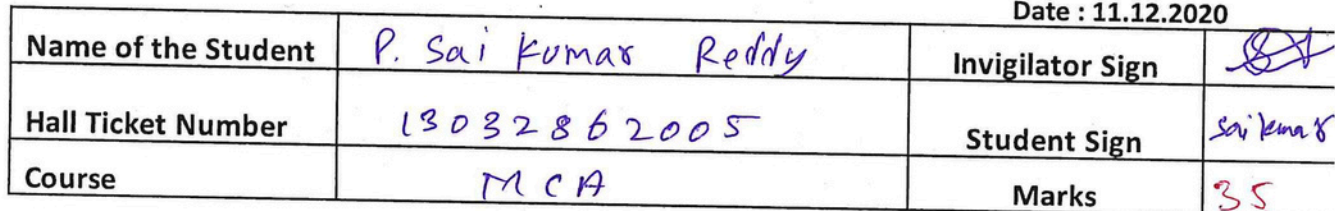 Date : 11.12.2020
Name of the Student P. Sai Kumar Reddy Invigilator Sign
Hall Ticket Number 13032862005 Student Sign Sai kumar
Course MCA Marks 35